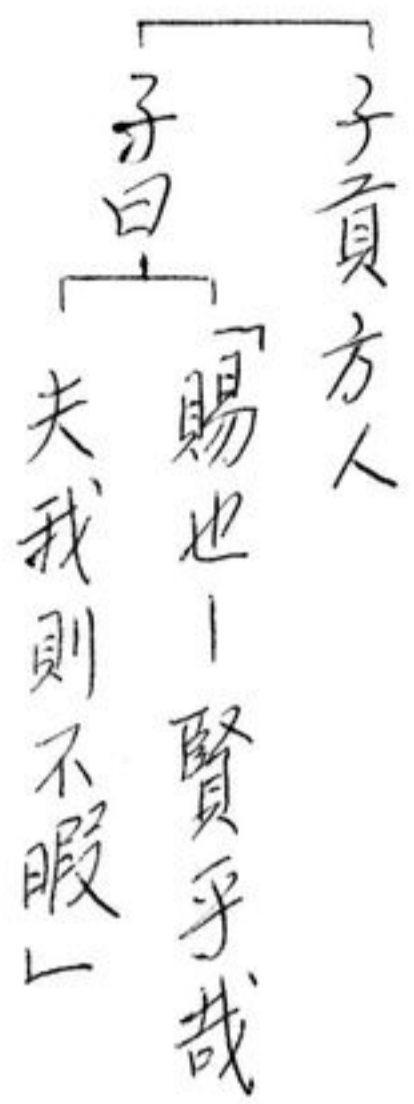 子貢方人
子曰
「賜也－賢乎哉
夫我則不暇」